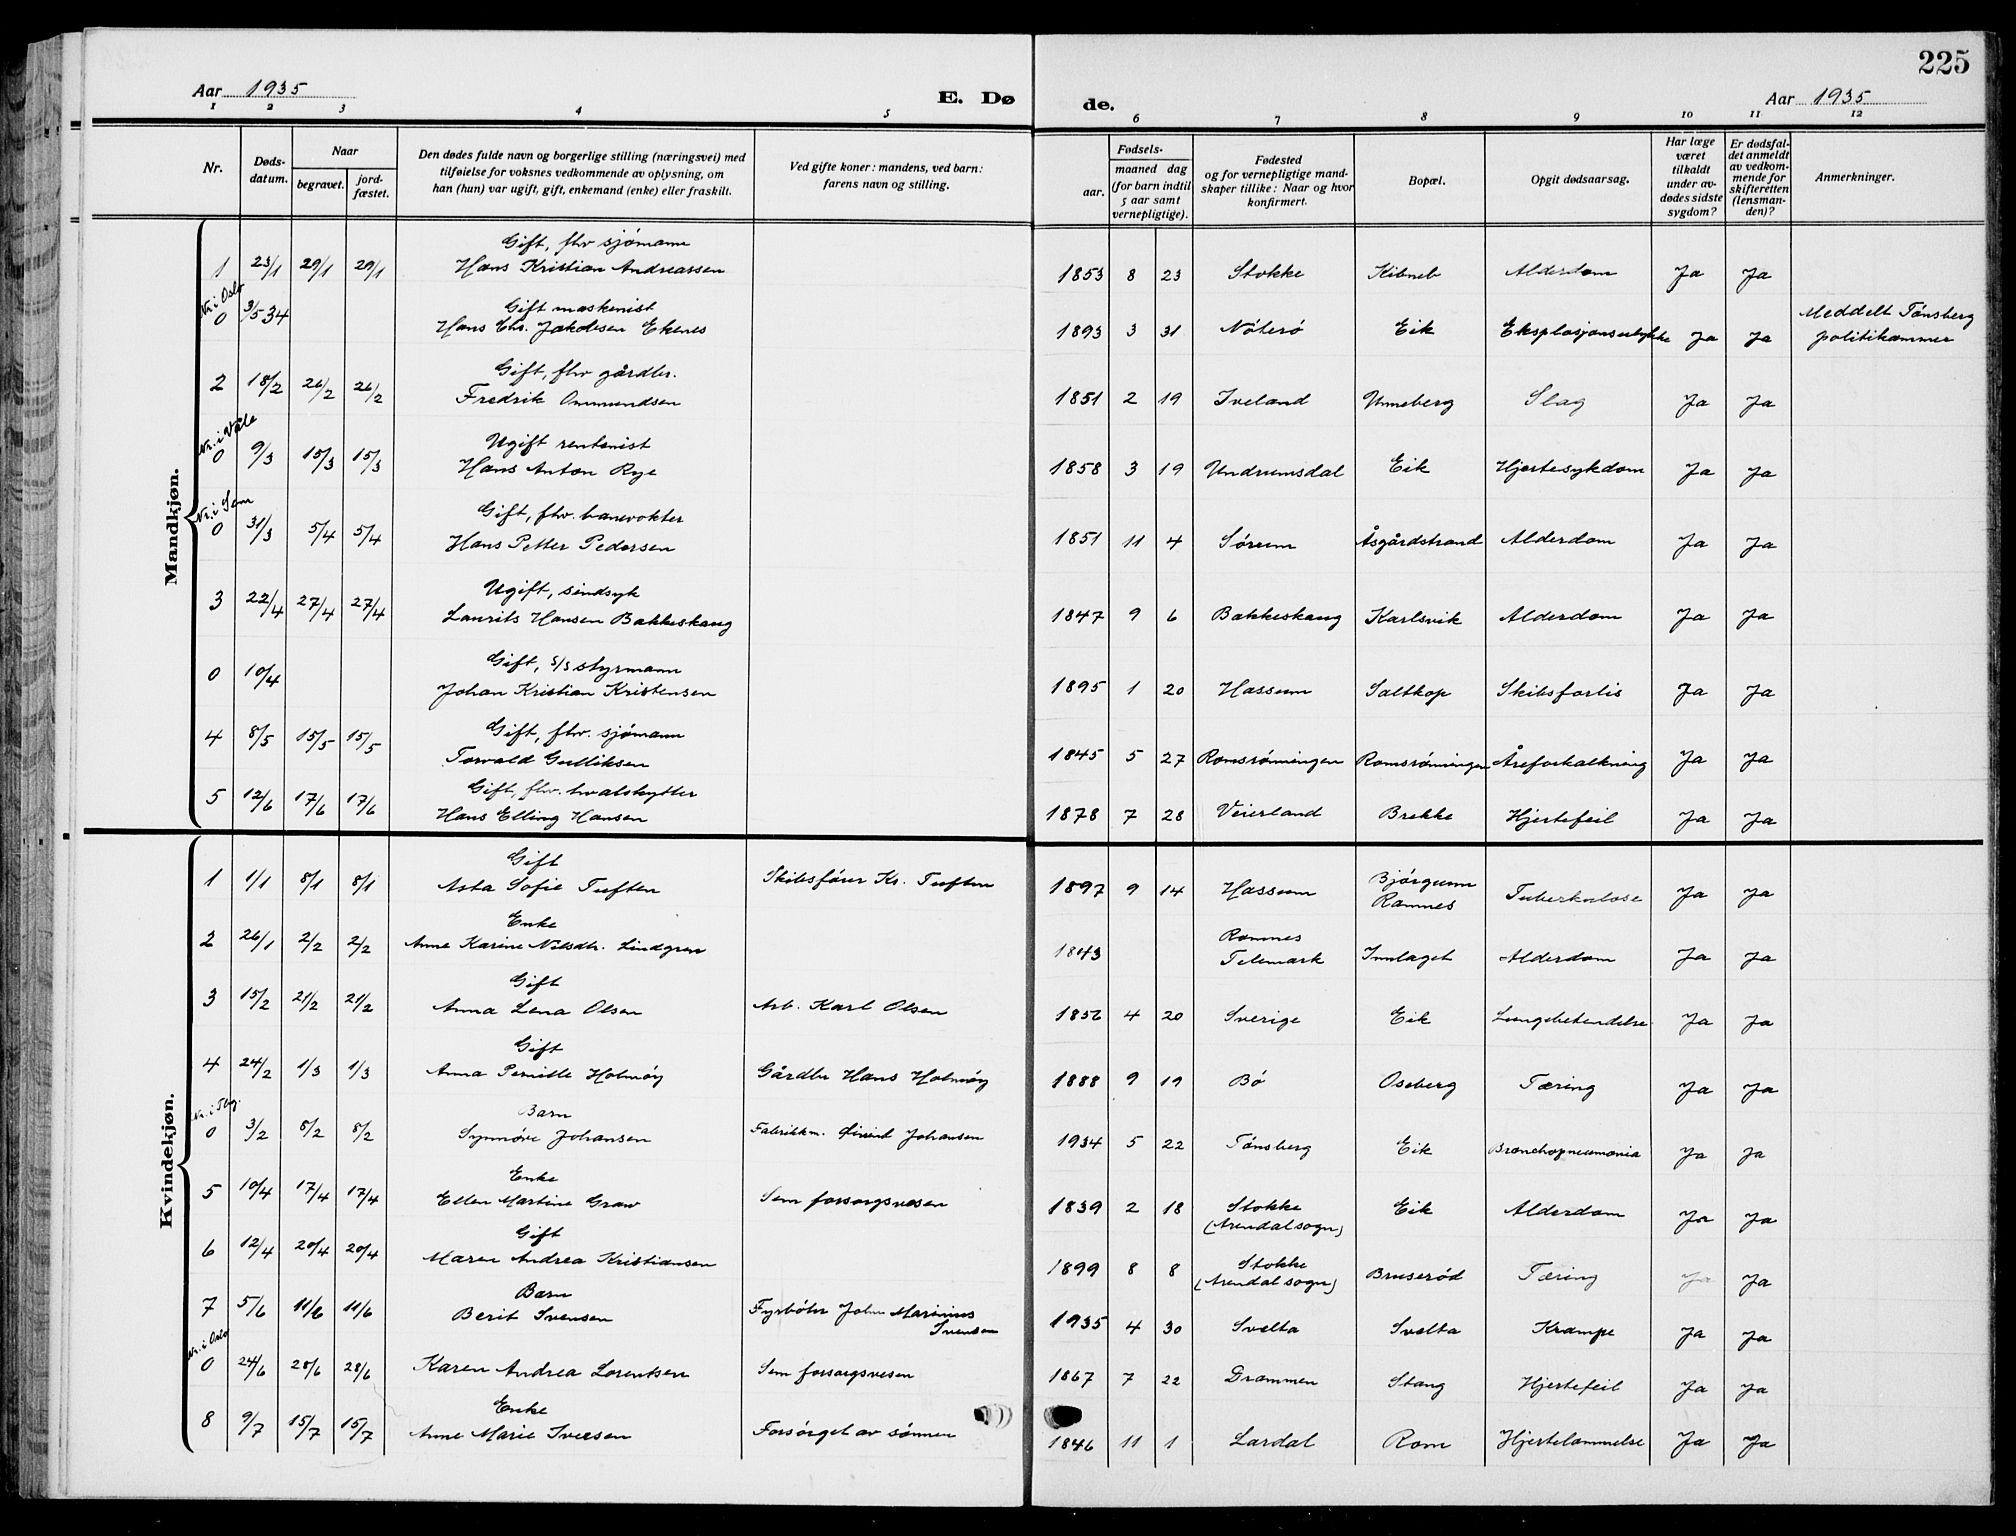 225
Aar 1935
E. Dø
de.
Aar 1935
1 2 3 4 5 6 7 8 9 10 11 12
Nr.
Døds-
datum.
Naar
begravet.
jord-
fæstet.
Den dødes fulde navn og borgerlige stilling (næringsvei) med
tilføielse for voksnes vedkommende av oplysning, om
han (hun) var ugift, gift, enkemand (enke) eller fraskilt.
Ved gifte koner: mandens, ved barn:
farens navn og stilling.
Fødsels-
aar.
maaned dag
(for barn indtil
5 aar samt
vernepligtige).
Fødested
og for vernepligtige mand-
skaper tillike: Naar og hvor
konfirmert.
Bopæl.
Opgit dødsaarsag.
Har læge
været
tilkaldt
under av-
dødes sidste
sygdom?
Er dødsfal-
det anmeldt
av vedkom-
mende for
skifteretten
(lensman-
den)?
Anmerkninger.
Mandkjøn.
Gift, fhv sjømann
1 23/1 29/1 29/1 Hans Kristian Andreassen 1853 8 23 Stokke Alderdom Ja Ja
Nr. i Oslo Gift maskenist Meddelt Tønsberg
0 3/5 34 Hans Chr. Jakobsen Ekenes 1893 3 31 Nøterø Eik Eksplosjonsulykke Ja Ja politikammer
Gift, fhv gårdbr.
2 18/2 26/2 26/2 Fredrik Ommundsen 1851 2 19 Iveland Unneberg Slag Ja Ja
Nr. i Våle Ugift rentenist
0 9/3 15/3 15/3 Hans Anton Rye 1858 3 19 Undrumsdal Eik Hjertesykdom Ja Ja
Nr. i Sem Gift, fhv. banevokter
0 31/3 5/4 5/4 Hans Petter Pedersen 1851 11 4 Sørum Åsgårdstrand Alderdom Ja Ja
Ugift, sindsyk
3 22/4 27/4 27/4 Laurits Hansen Bakkeskaug 1847 9 6 Bakkeskaug Karlsvik Alderdom Ja Ja
Gift, s/s styrmann
0 10/4 Johan Kristian Kristensen 1895 1 20 Hassum Saltkop Skibsforlis Ja Ja
Gift, fhv. sjømann
4 8/5 15/5 15/5 Torvald Gulliksen 1845 5 27 Romsrønningen Romsrønningen Åreforkalkning Ja Ja
Gift, fhv. hvalskytter
5 12/6 17/6 17/6 Hans Elling Hansen 1878 7 28 Veierland Brekke Hjertefeil Ja Ja
Kvindekjøn.
Gift Bjørgum
1 1/1 8/1 8/1 Asta Sofie Tuften Skibsfører Kr. Tuften 1897 9 14 Hassum Ramnes Tuberkulose Ja Ja
Enke Ramnes
2 26/1 2/2 2/2 Anne Karine Nilsdtr. Lindgren 1843 Telemark Innlaget Alderdom Ja Ja
Gift
3 15/2 21/2 21/2 Anna Lena Olsen Arb. Karl Olsen 1856 4 20 Sverige Eik Lungebetendelse Ja Ja
Gift
4 24/2 1/3 1/3 Anna Pernille Holmøy Gårdbr Hans Holmøy 1888 9 19 Bø Oseberg Tæring Ja Ja
Nr. i Tbg. Barn
0 3/2 8/2 8/2 Synnøve Johansen Fabrikkm. Johansen 1934 5 22 Tønsberg Eik Bronchopneumonia Ja Ja
Enke
5 10/4 17/4 17/4 Ellen Martine Grav Sem forsorgsvesen 1839 2 18 Stokke Eik Alderdom Ja Ja
(Arendal sogn)
Gift
6 12/4 20/4 20/4 Maren Andrea Kristiansen 1899 8 8 Stokke Bruserød Tæring Ja Ja
(Arendal sogn)
Barn
7 5/6 11/6 11/6 Berit Svensen Fyrbøter John Marinius 1935 4 30 Svelta Svelta Krampe Ja Ja
Svensen
Nr. i Oslo
0 24/6 28/6 28/6 Karen Andrea Lorentsen Sem forsorgsvesen 1867 7 22 Drammen Stang Hjertefeil Ja Ja
Enke
8 9/7 15/7 15/7 Anne Marie Iversen Forsørget av sønnen 1846 11 1 Lardal Rom Hjertelammelse Ja Ja